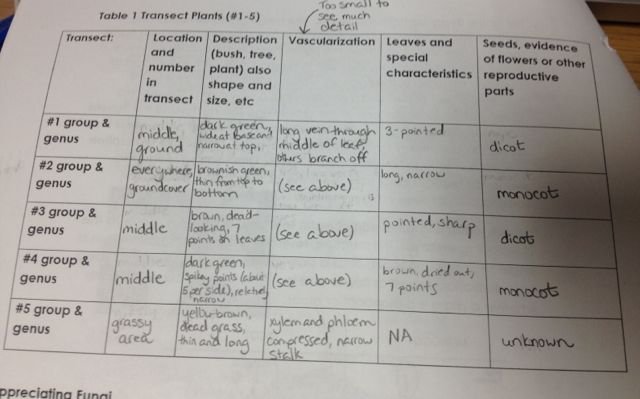 Table 1 Transect Plants (#1-5)
Too small to
see much
detail
Transect:
Location
and
number
in
transect
Description
(bush, tree,
plant) also
shape and
size, etc
Vascularization
Leaves and
special
characteristics
Seeds, evidence
of flowers or other
reproductive
parts
#1 group &
genus
middle,
ground
dark green,
wide at base and
narrow at top,
long vein through
middle of leaf,
others branch off
3-pointed
dicot
#2 group &
genus
everywhere,
groundcover
brownish green,
thin from top to
bottom
(see above)
long, narrow
monocot
#3 group &
genus
middle
brown, dead-
looking, 7
points on leaves
(see above)
pointed, sharp
dicot
#4 group &
genus
middle
dark green,
spikey points (about
5 per side),
narrow
(see above)
brown, dried out,
7 points
monocot
#5 group &
genus
grassy
area
yellow-brown,
dead grass,
thin and long
xylem and phloem
compressed, narrow
stalk
NA
unknown
ppreciating Fungi